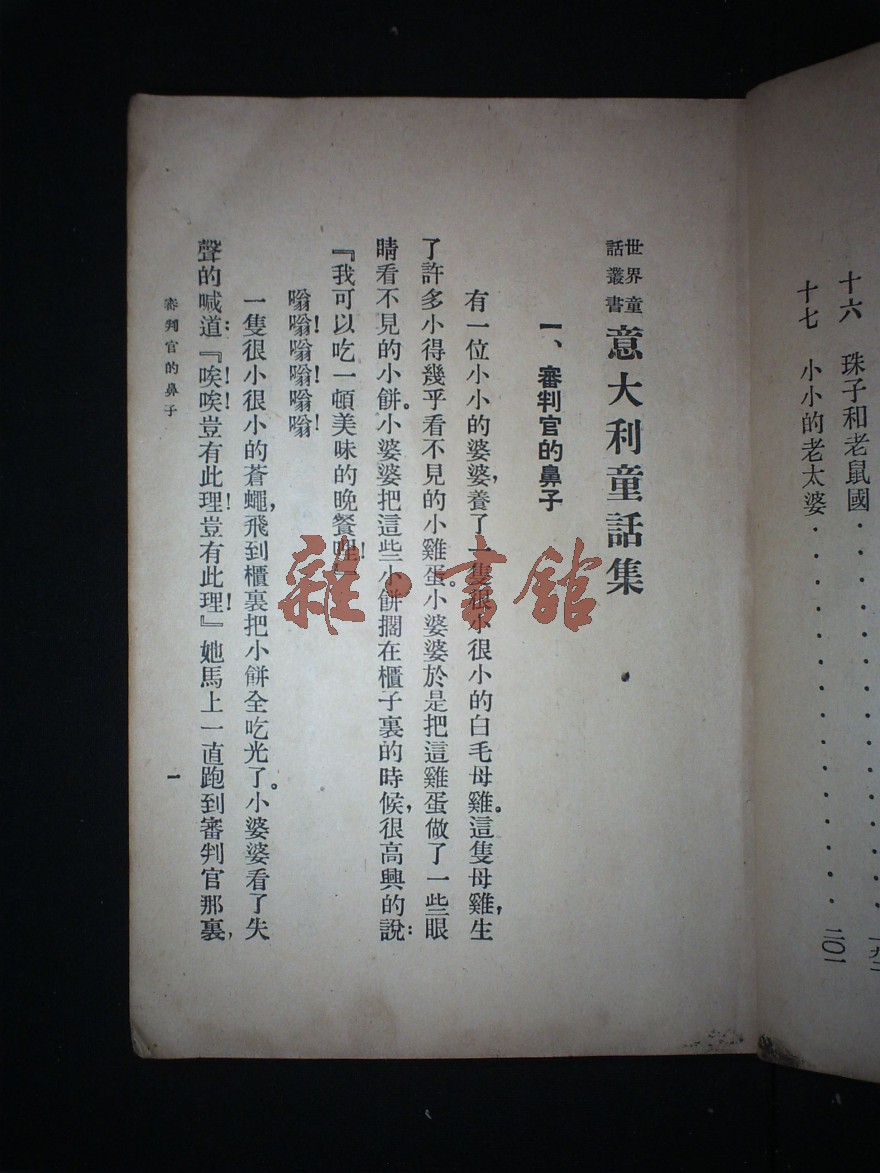 十六 珠子和老鼠國
十七 小小的老太婆 二〇一
世界童話叢書
意大利童話集
一、審判官的鼻子
有一位小小的婆婆，養了一隻很小很小的白毛母雞。這隻母雞，生
了許多小得幾乎看不見的小雞蛋。小婆婆於是把這雞蛋做了一些眼
睛看不見的小餅。小婆婆把這些小餅擱在櫃子裏的時候，很高興的說：
『我可以吃一頓美味的晚餐哩！』
嗡嗡！嗡嗡！嗡嗡！
一隻很小很小的蒼蠅，飛到櫃裏把小餅全吃光了。小婆婆看了失
聲的喊道：『唉！唉！豈有此理！豈有此理！』她馬上一直跑到審判官那裏，
審判官的鼻子
一
雜·書館